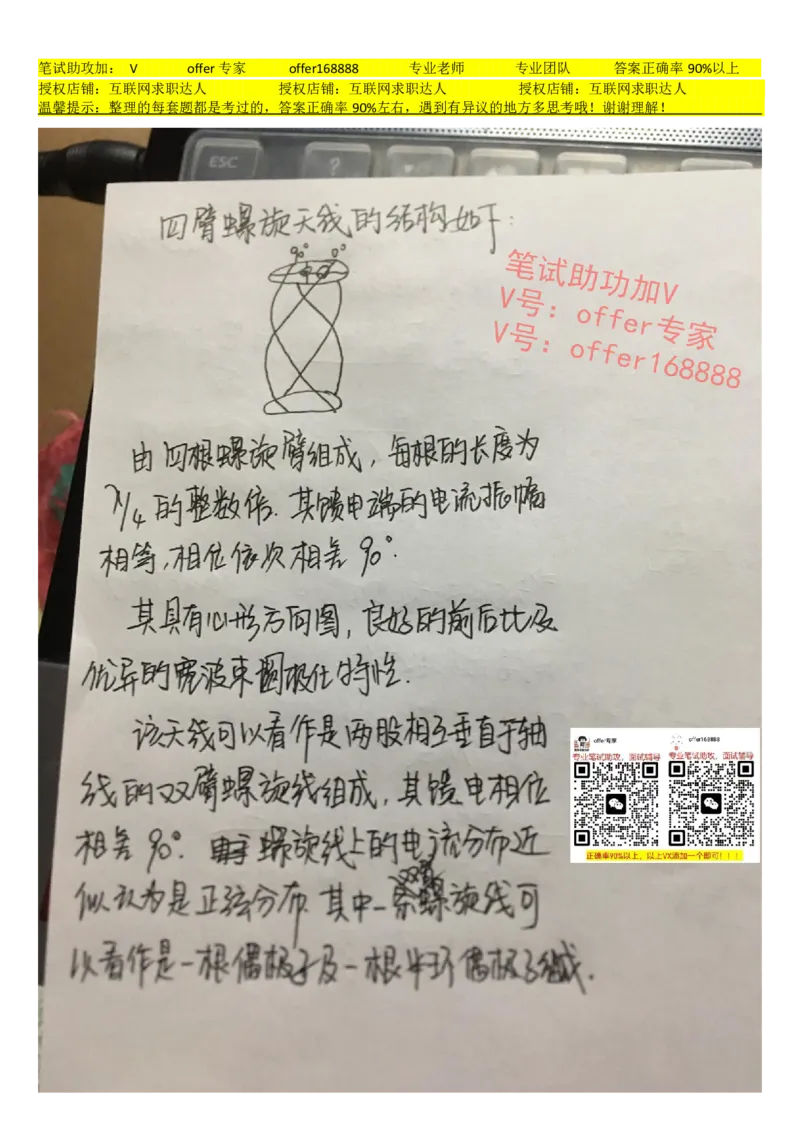 笔试助攻加： V offer 专家 offer168888 专业老师 专业团队 答案正确率 90%以上
授权店铺：互联网求职达人 授权店铺：互联网求职达人 授权店铺：互联网求职达人
温馨提示：整理的每套题都是考过的，答案正确率 90%左右，遇到有异议的地方多思考哦！谢谢理解！
ESC
?
四臂螺旋天线的结构如下：
90° 0°
笔试助功加V
V号：offer专家
V号：offer168888
由四根螺旋臂组成，每根的长度为
λ/4 的整数倍. 其馈电端的电流振幅
相等，相位依次相差 90°.
其具有心形方向图，良好的前后比及
优异的宽波束圆极化特性.
该天线可以看作是两股相互垂直于轴
线的双臂螺旋线组成，其馈电相位
相差 90°. 螺旋线上的电流分布近
似认为是正弦分布. 其中一双臂螺旋线可
以看作是一根偶极子及一根半环偶极子组成.
offer专家
offer168888
专业笔试助攻、面试辅导
专业笔试助攻、面试辅导
正确率90%以上，以上VX添加一个即可！！！